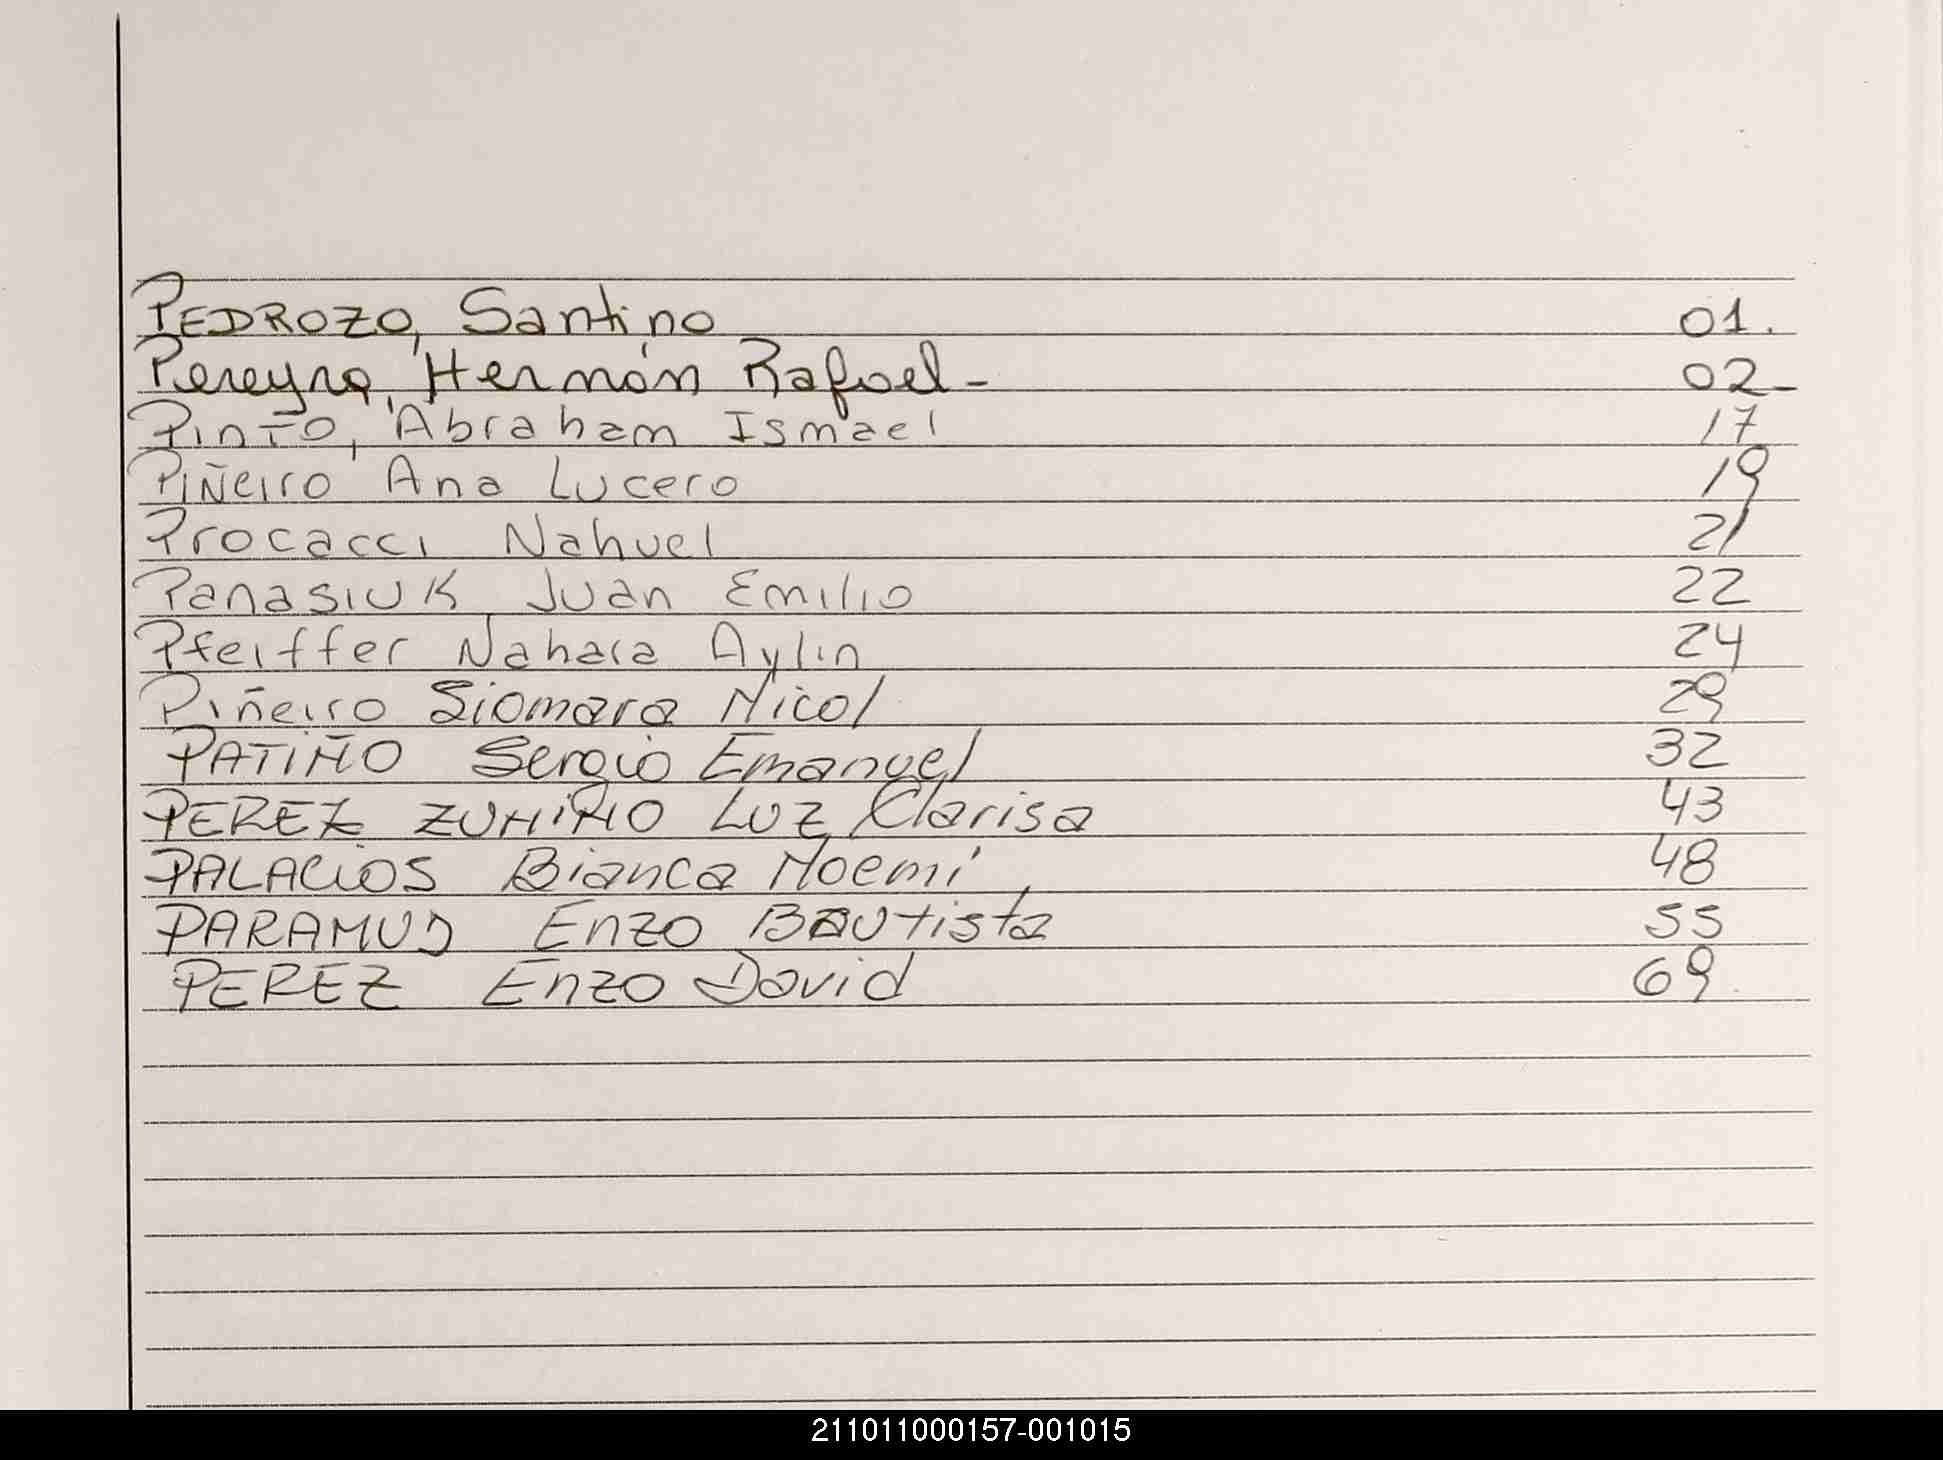 PEDROZO, Santino 01.
Pereyra, Hernán Rafael - 02-
Pinto, Abraham Ismael 17
Piñeiro Ana Lucero 19
Procacci Nahuel 21
Panasiuk Juan Emilio 22
Pfeiffer Nahara Aylin 24
Piñeiro Siomara Nicol 29
PATIÑO Sergio Emanuel 32
PEREZ ZUÑIÑO LUZ Clarisa 43
PALACIOS Bianca Noemí 48
Enzo Bautista 55
PEREZ Enzo David 69
211011000157-001015